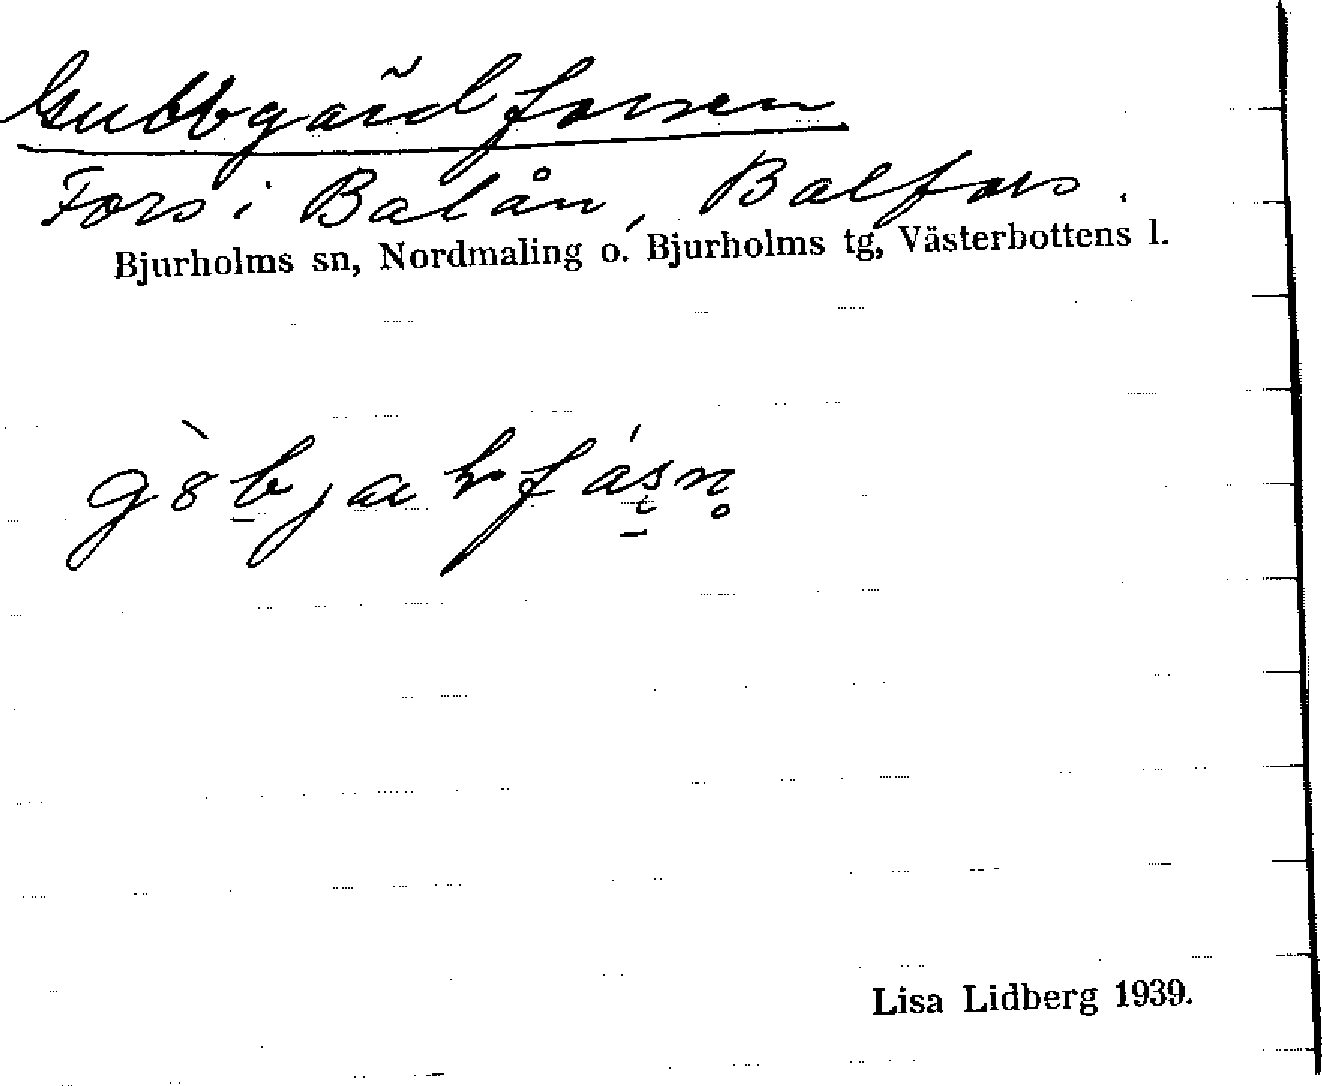 Gubbgärdforsen
Fors i Balån, Balfors.
Bjurholms sn, Nordmaling o. Bjurholms tg, Västerbottens l.
Lisa Lidberg 1939.